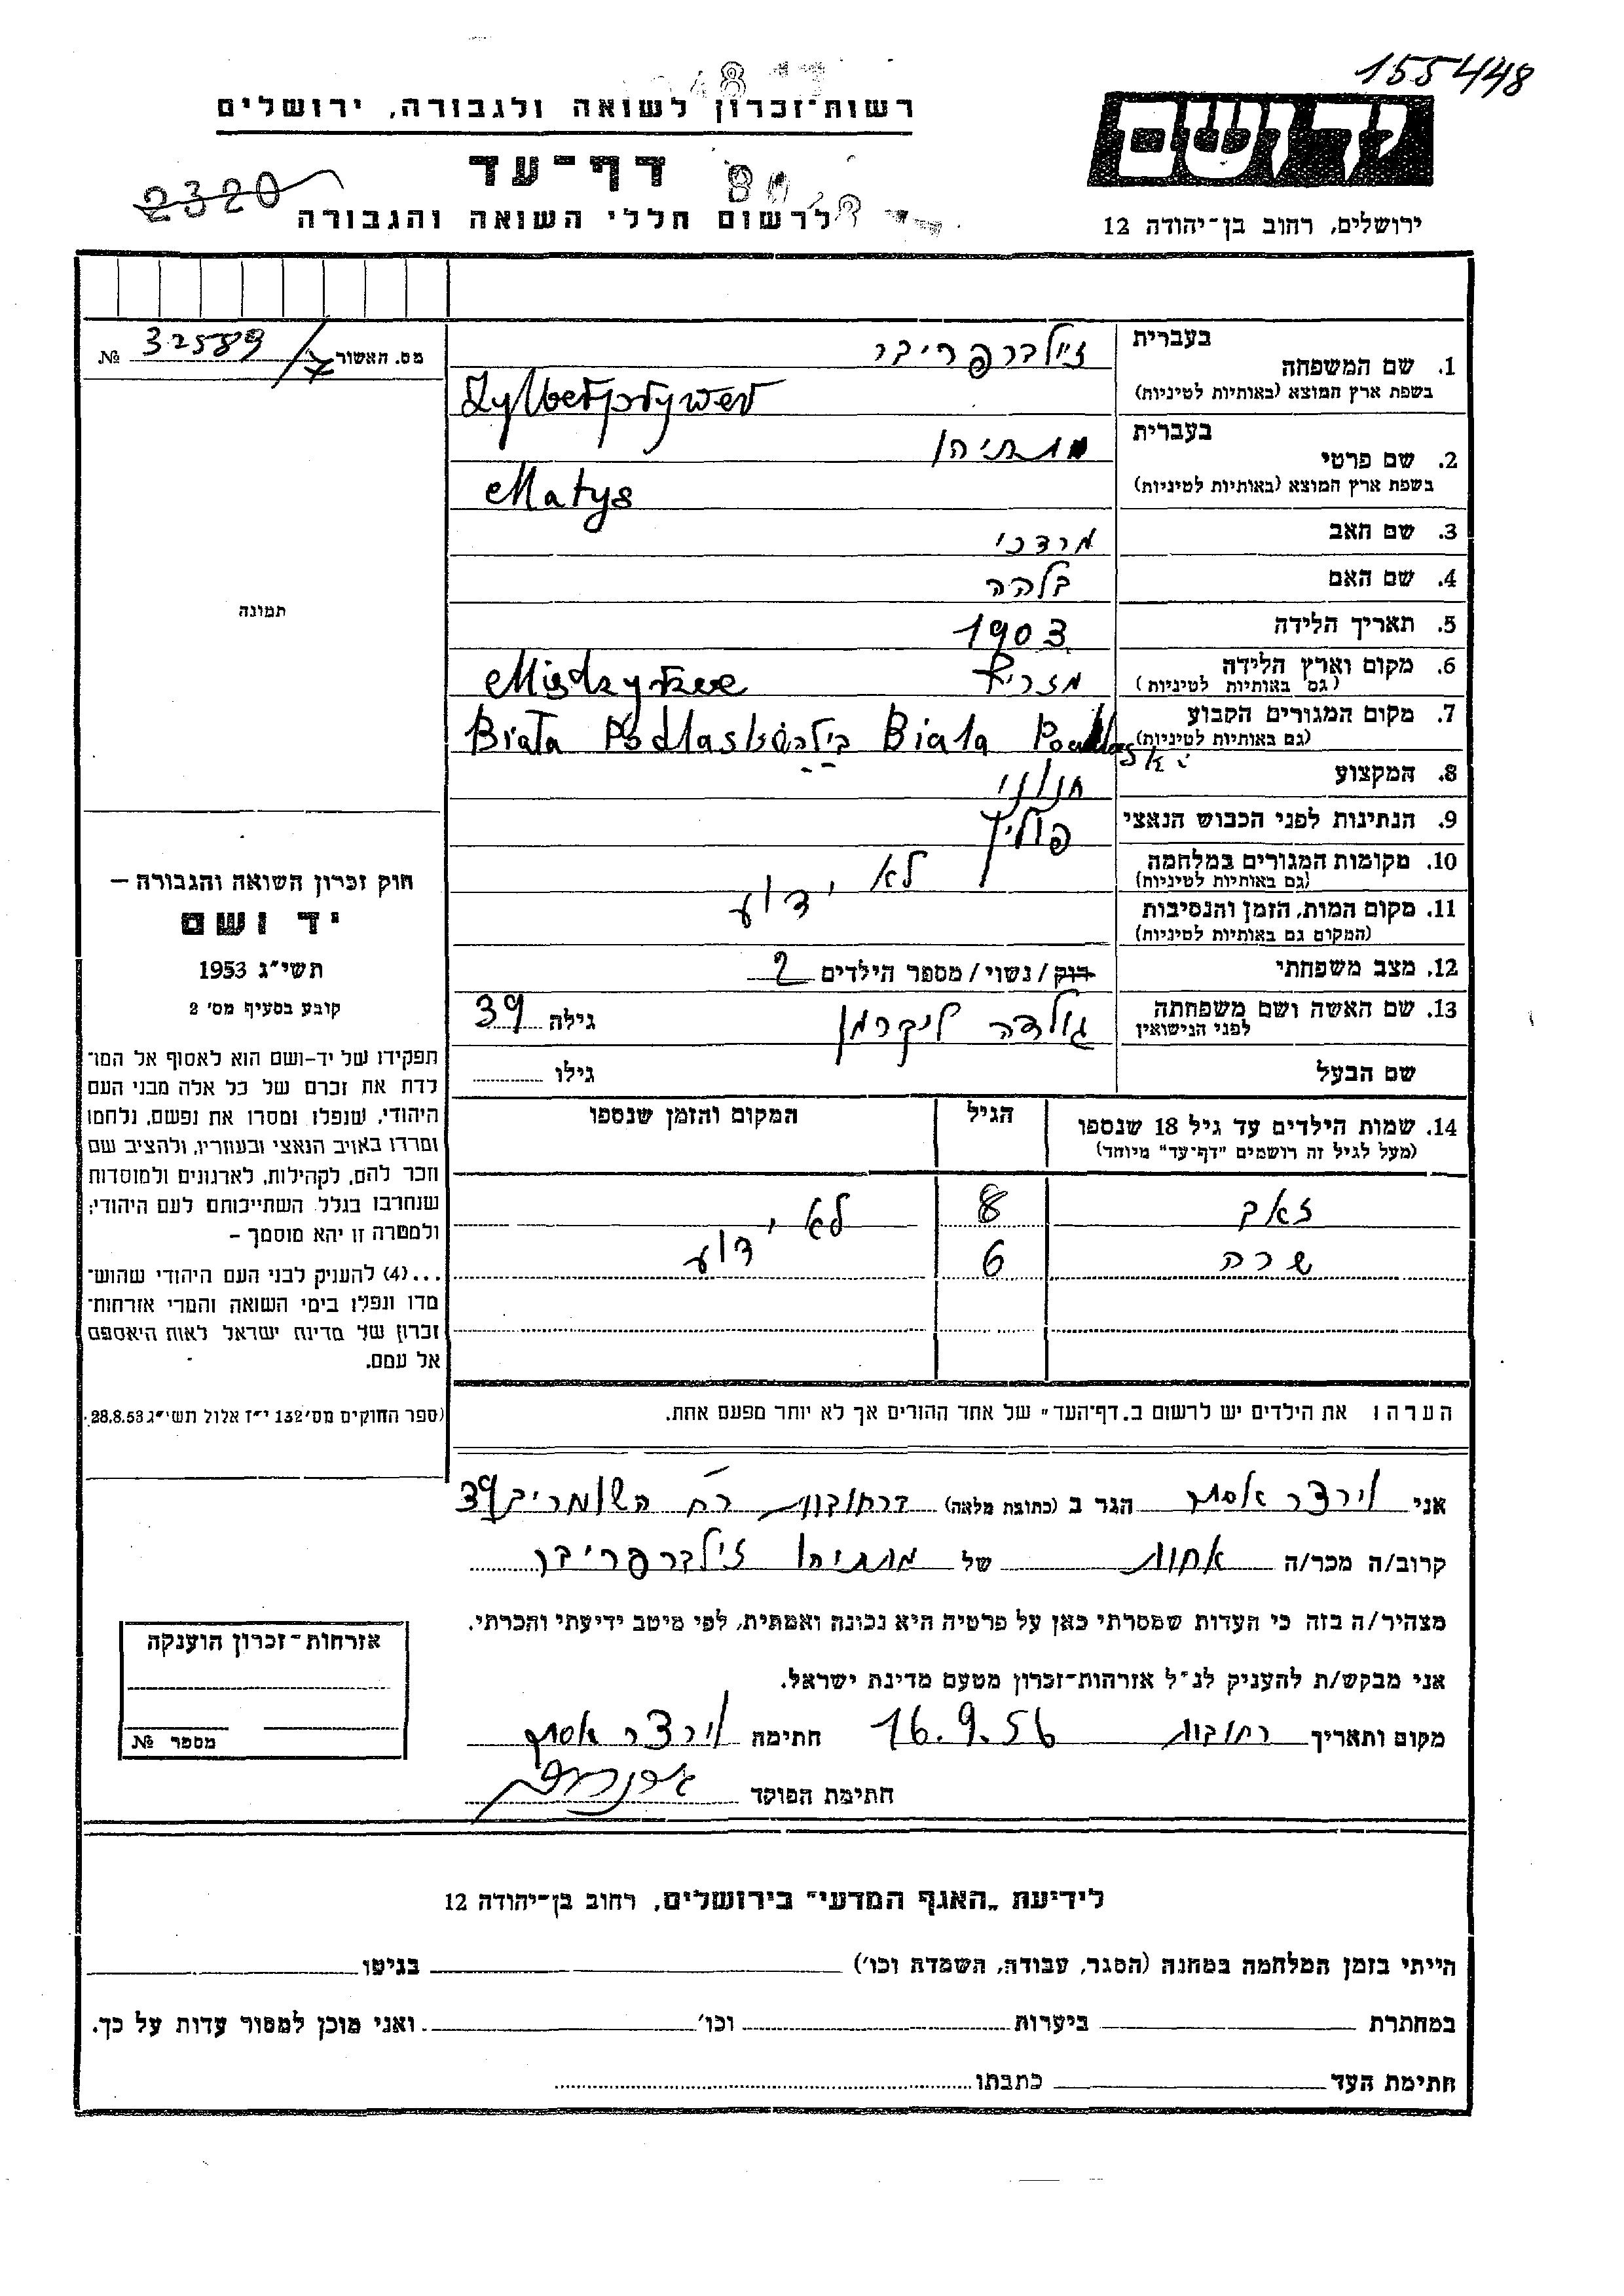 155448
רשות-זכרון לשואה ולגבורה, ירושלים
יד ושם
דף-עד
2320
לרשום חללי השואה והגבורה
ירושלים, רחוב בן-יהודה 12
מס. האשור 32589/7 №
1. שם המשפחה
בעברית זילברפריבר
בשפת ארץ המוצא (באותיות לטיניות) Zylberprywer
2. שם פרטי
בעברית מתתיהו
בשפת ארץ המוצא (באותיות לטיניות) Matys
3. שם האב מרדכי
4. שם האם בלהה
5. תאריך הלידה 1903
6. מקום וארץ הלידה מזריץ Międzyrzec
(גם באותיות לטיניות)
7. מקום המגורים הקבוע Biała Podlaska Biala
(גם באותיות לטיניות)
8. המקצוע חנוני
9. הנתינות לפני הכבוש הנאצי פולין
10. מקומות המגורים במלחמה לא
(גם באותיות לטיניות)
ידוע
11. מקום המות, הזמן והנסיבות
(המקום גם באותיות לטיניות)
12. מצב משפחתי רוק/נשוי/מספר הילדים 2
13. שם האשה ושם משפחתה גולדה גילה 39
לפני הנישואין
שם הבעל גילו
14. שמות הילדים עד גיל 18 שנספו הגיל המקום והזמן שנספו
(מעל לגיל זה רושמים "דף-עד" מיוחד)
זאב 8 לא
שרה 6 ידוע
הערה: את הילדים יש לרשום ב„דף-העד" של אחד ההורים אך לא יותר מפעם אחת.
תמונה
חוק זכרון השואה והגבורה —
יד ושם
תשי"ג 1953
קובע בסעיף מס' 2
תפקידו של יד-ושם הוא לאסוף אל המו־
לדת את זכרם של כל אלה מבני העם
היהודי, שנפלו ומסרו את נפשם, נלחמו
ומרדו באויב הנאצי ובעוזריו, ולהציב שם
וזכר להם, לקהילות, לארגונים ולמוסדות
שנחרבו בגלל השתייכותם לעם היהודי;
ולמטרה זו יהא מוסמך –
...(4) להעניק לבני העם היהודי שהוש־
מדו ונפלו בימי השואה והמרי אזרחות־
זכרון של מדינת ישראל לאות היאספם
אל עמם.
(ספר החוקים מס' 132 י"ז אלול תשי"ג 28.8.53)
אני וירצר אסתר הגר ב (כתובת מלאה) ברחובות רח השומרים 39
קרוב/ה מכר/ה אחות של מתתיהו זילברפריבר
מצהיר/ה בזה כי העדות שמסרתי כאן על פרטיה היא נכונה ואמתית, לפי מיטב ידיעתי והכרתי.
אני מבקש/ת להעניק לנ"ל אזרחות-זכרון מטעם מדינת ישראל.
מקום ותאריך רחובות 16.9.56 חתימה וירצר אסתר
חתימת הפוקד
אזרחות-זכרון הוענקה
מספר №
לידיעת „האגף המדעי" בירושלים, רחוב בן-יהודה 12
הייתי בזמן המלחמה במחנה (הסגר, עבודה, השמדה וכו') בגיטו
במחתרת ביערות וכו' ואני מוכן למסור עדות על כך.
חתימת העד כתבתו